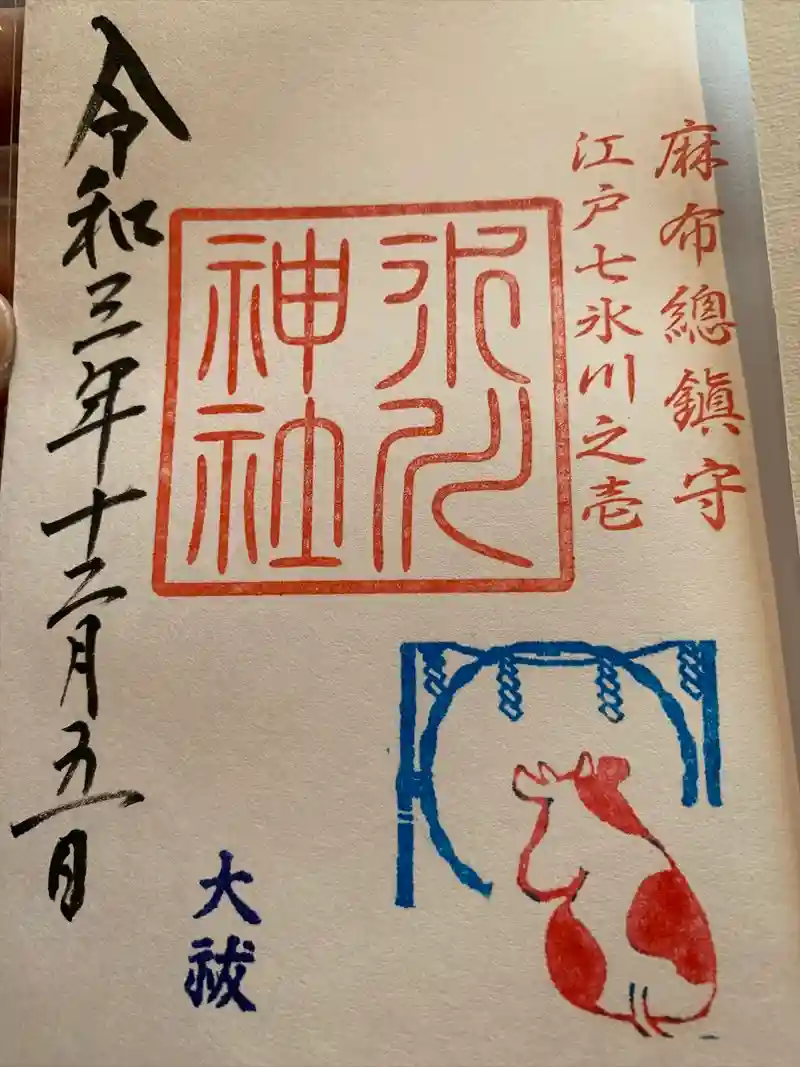 麻布總鎮守
江戸七氷川之壱
氷川
神社
令和三年十二月五日
大祓